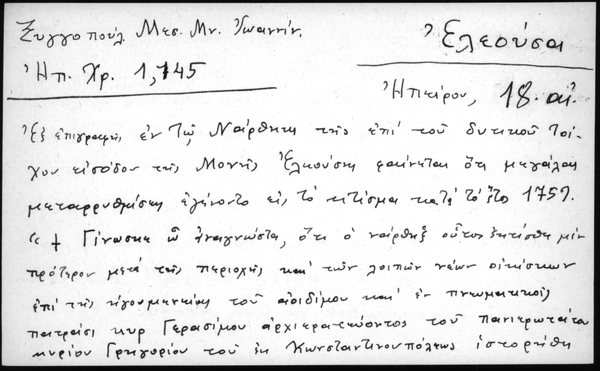 Ξυγγοπούλ. Μεσ. Μν. Ἰωαννίν.
Ἐλεούσαι
Ἠπ. Χρ. 1,145
Ἠπείρου, 18. αἰ.
Ἐξ ἐπιγραφῆς ἐν τῷ Νάρθηκι τῆς ἐπὶ τοῦ δυτικοῦ τοί-
χου εἰσόδου τῆς Μονῆς Ἐλεούσης φαίνεται ὅτι μεγάλαι
μεταρρυθμίσεις ἐγένοντο εἰς τὸ κτίσμα κατὰ τὸ ἔτος 1759.
"† Γίνωσκε ὦ ἀναγνῶστα, ὅτι ὁ νάρθηξ οὗτος ἐκτίσθη μὲν
πρότερον μετὰ τῆς περιοχῆς καὶ τῶν λοιπῶν νέων οἰκίσκων
ἐπὶ τῆς ἡγουμενείας τοῦ ἀοιδίμου καὶ ἐν πνευματικοῖς
πατράσι κυρ Γερασίμου ἀρχιερατεύοντος τοῦ πανιερωτάτου
κυρίου Γρηγορίου τοῦ ἐκ Κωνσταντινουπόλεως ἱστορήθη